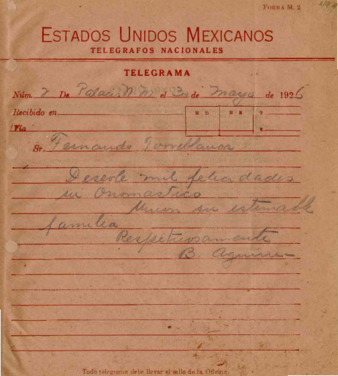 FORMA M. 2
ESTADOS UNIDOS MEXICANOS
TELEGRAFOS NACIONALES
TELEGRAMA
Núm. 7 De Palacio N. M. el 30 de Mayo de 1926
Recibido en
Vía
Sr. Fernando Torreblanca
Deseole mil felicidades
su Onomastico
Union su estimable
familia
Respetuosamente
B. Aguirre
Todo telegrama debe llevar el sello de la Oficina.